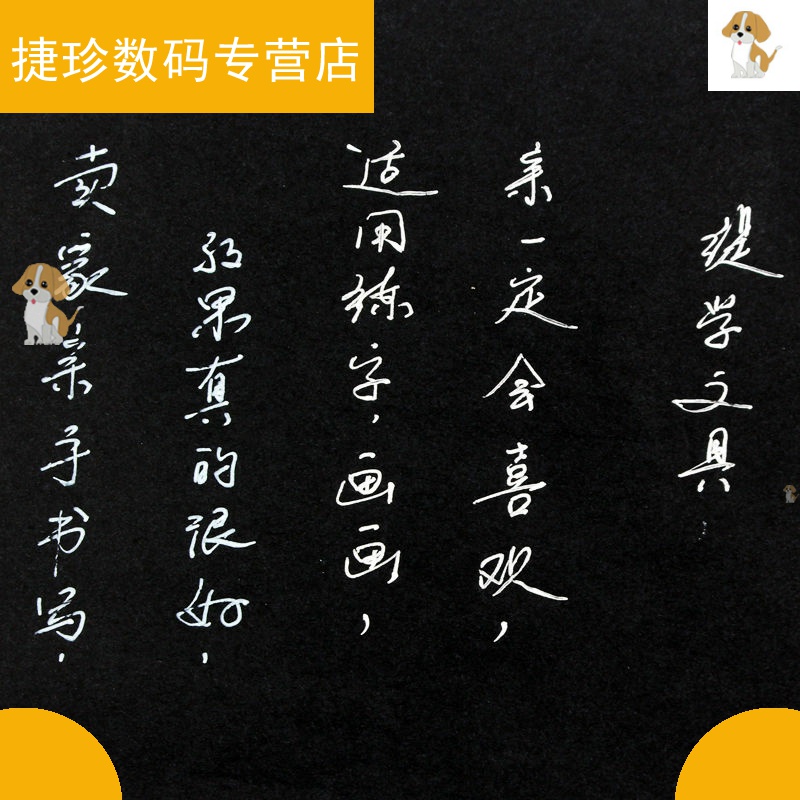 捷珍数码专营店
卖家亲手书写，
效果真的很好，
适用练字，画画，
亲一定会喜欢，
学文具